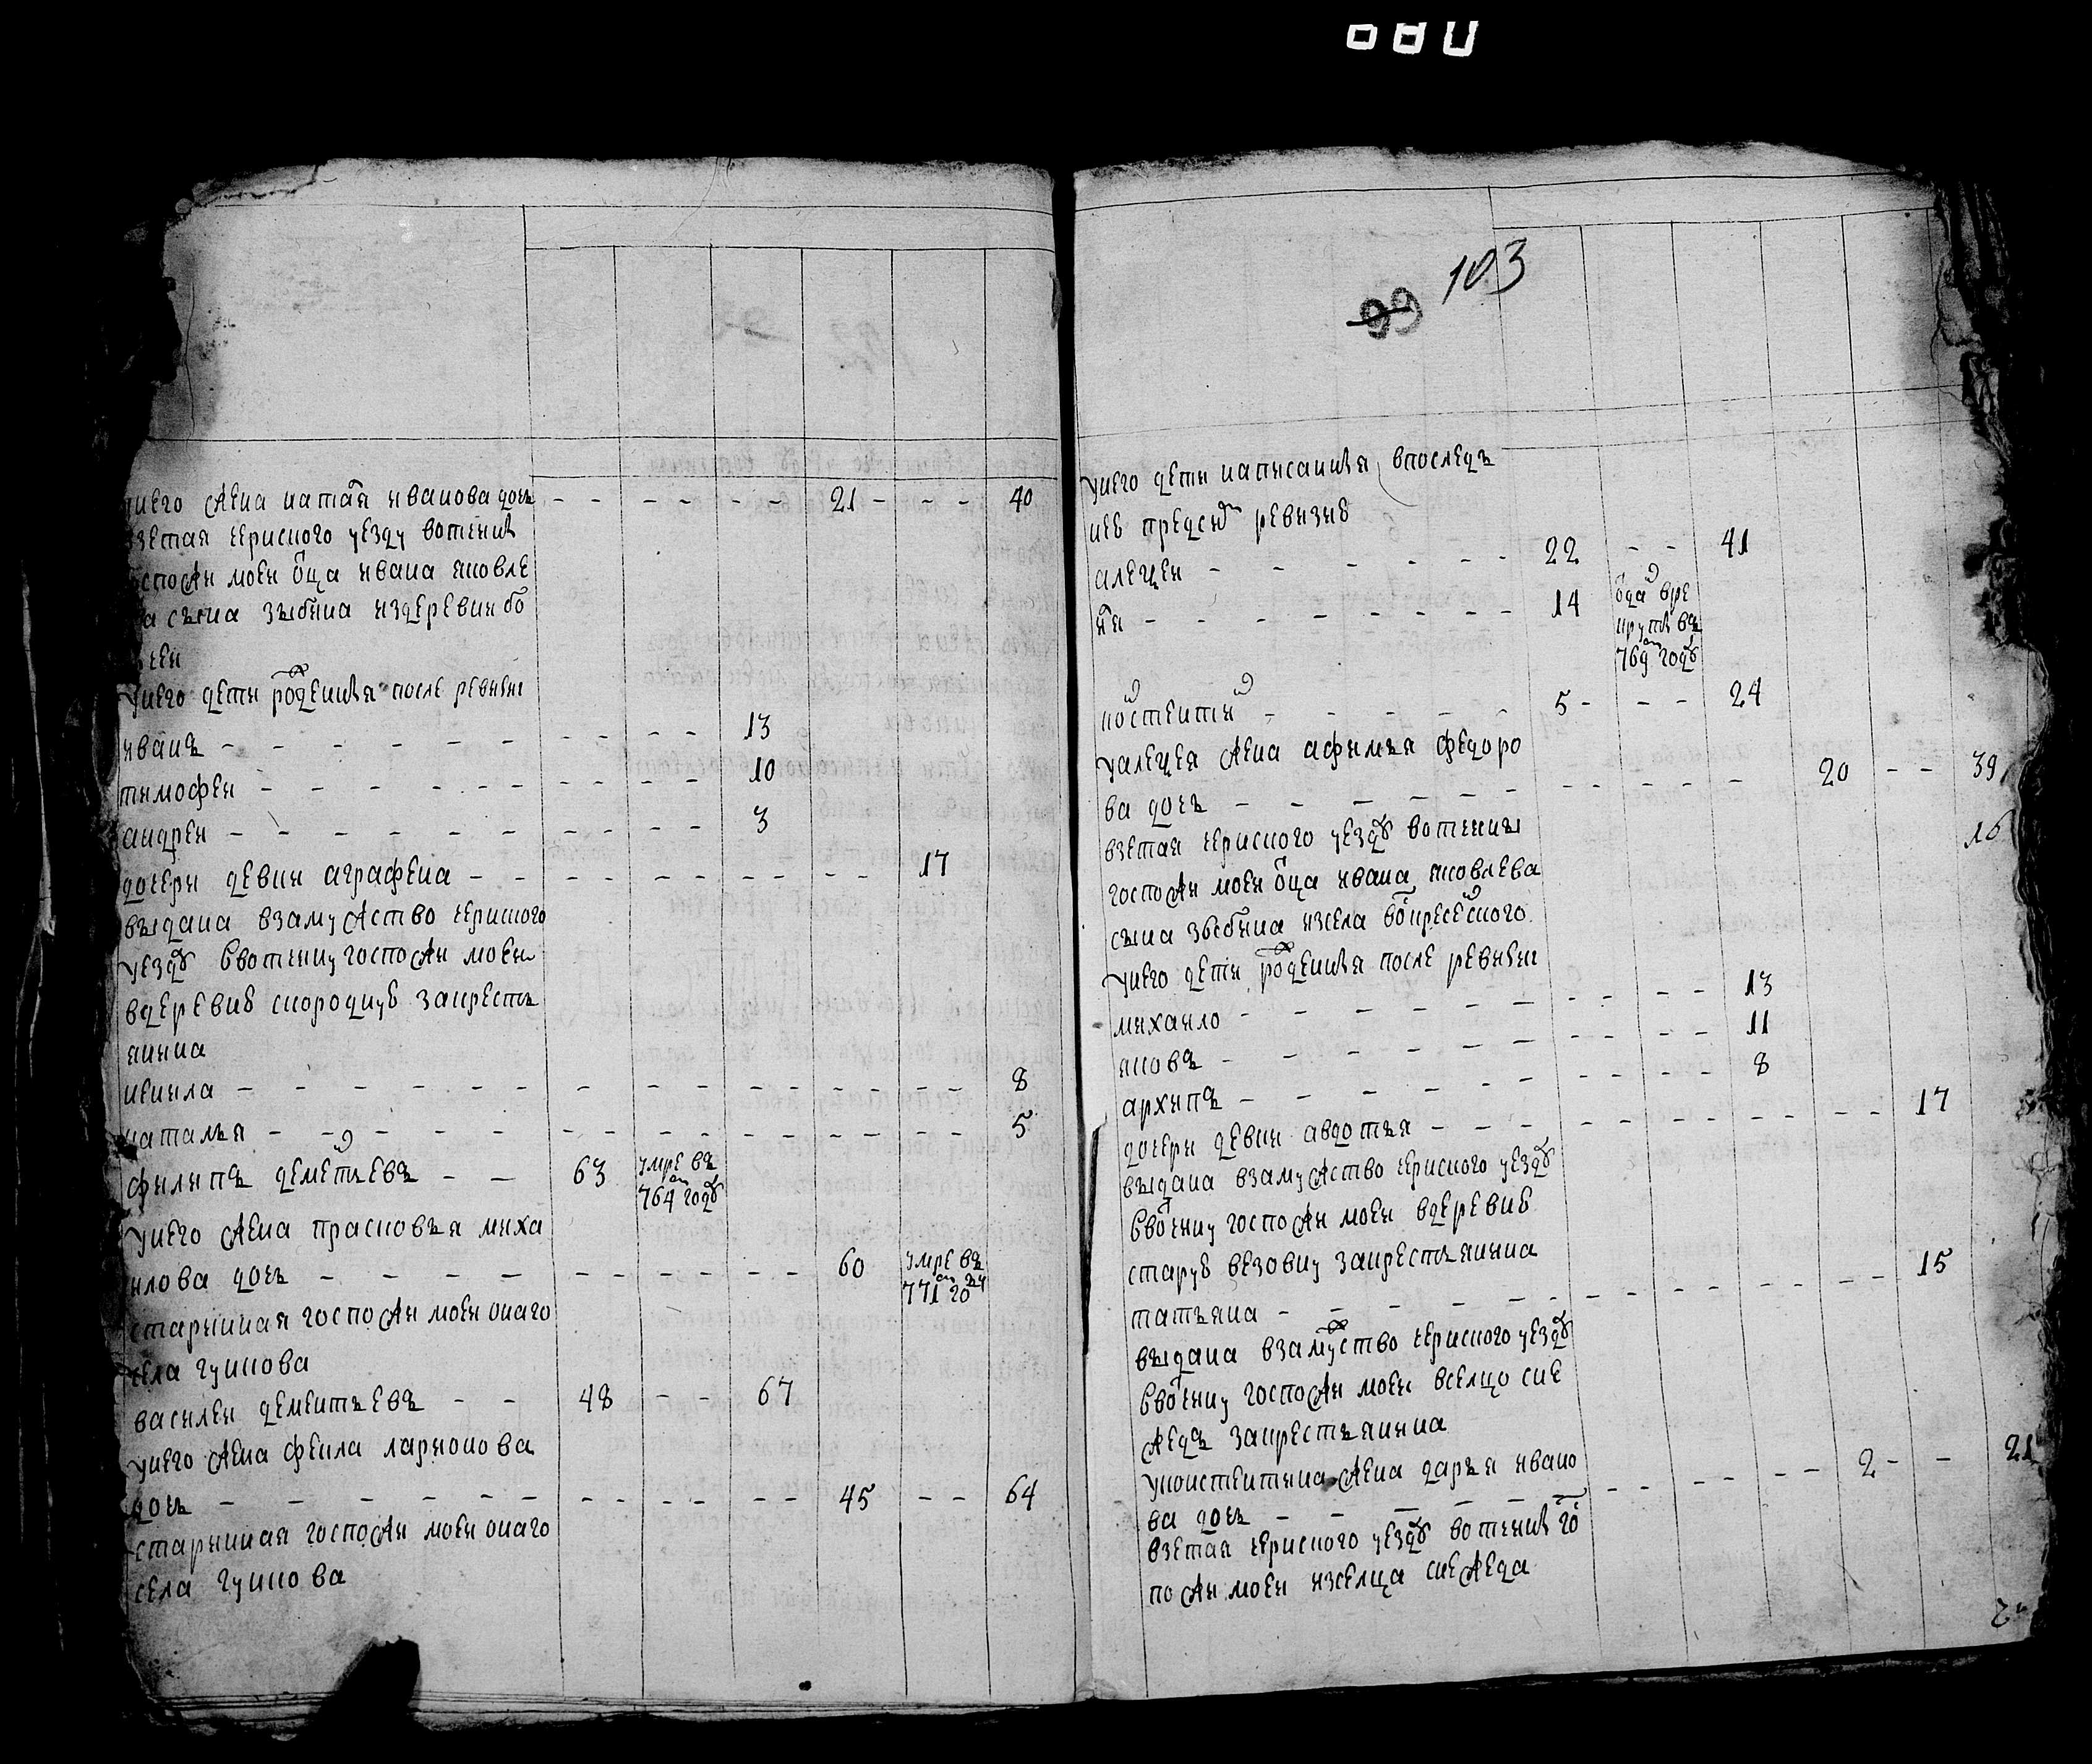 080
у него жена наталя иванова дочь - - - - - - 21 - - - 40
взетая кернского уезду вотчины
господжи моеи отца ивана яковле
ва сына зыбина издеревни бо
у него дети рожденныя после ревизии
иванъ - - - - - - - - - - 13
тимофеи - - - - - - - - - - 10
андреи - - - - - - - - - - 3
дочери девки аграфена - - - - - - - - - - 17
выдана взамужство керенского
уезду ввотчину госпожи моеи
вдеревню скородную закресть
янина
ненила - - - - - - - - - - - - - - - 8
наталья - - - - - - - - - - - - - - 5
филипъ деметьевъ - - 63 умре въ
764 году
у него жена прасковья миха
илова дочь - - - - - - - - - - 60 умре въ
771 году
старинная госпожи моеи онаго
села гункова
василеи дементьевъ - - 48 - - 67
у него жена фекла ларионова
дочь - - - - - - - - - - - - 45 - - 64
старинная госпожи моеи онаго
села гункова
103
99
у него дети написанныя впослед
неи пред сею ревизие
алексеи - - - - - - 22 - - 41
- - - - - - - 14 отданъ вре
круты въ
764 году
костентин - - - - - 5 - - - 24
у алексея жена афимья федоро
ва дочь - - - - - - - - - - - 20 - - 39
взетая керенского уезду вотчины 16
госпожи моеи отца ивана яковлева
сына зыбина изсела воскресенского
у него дети рожденныя после ревизии
михаило - - - - - - - - - - 13
яковъ - - - - - - - - - - - 11
архипъ - - - - - - - - - - 8
дочери девки авдотья - - - - - - - - - - - 17
выдана взамужство керенского уезду
ввотчину госпожи моеи вдеревню
закрестьянина
татьяна - - - - - - - - - - - - - - 15
выдана взамужство керенского уезду
ввотчину госпожи моеи вселцо сне
жедъ закрестьянина
уконстентина жена дарья ивано
ва дочь - - - - - - - - - - - 2 - - 21
взетая керенского уезду вотчины гос
пожи моеи изселца снежеда